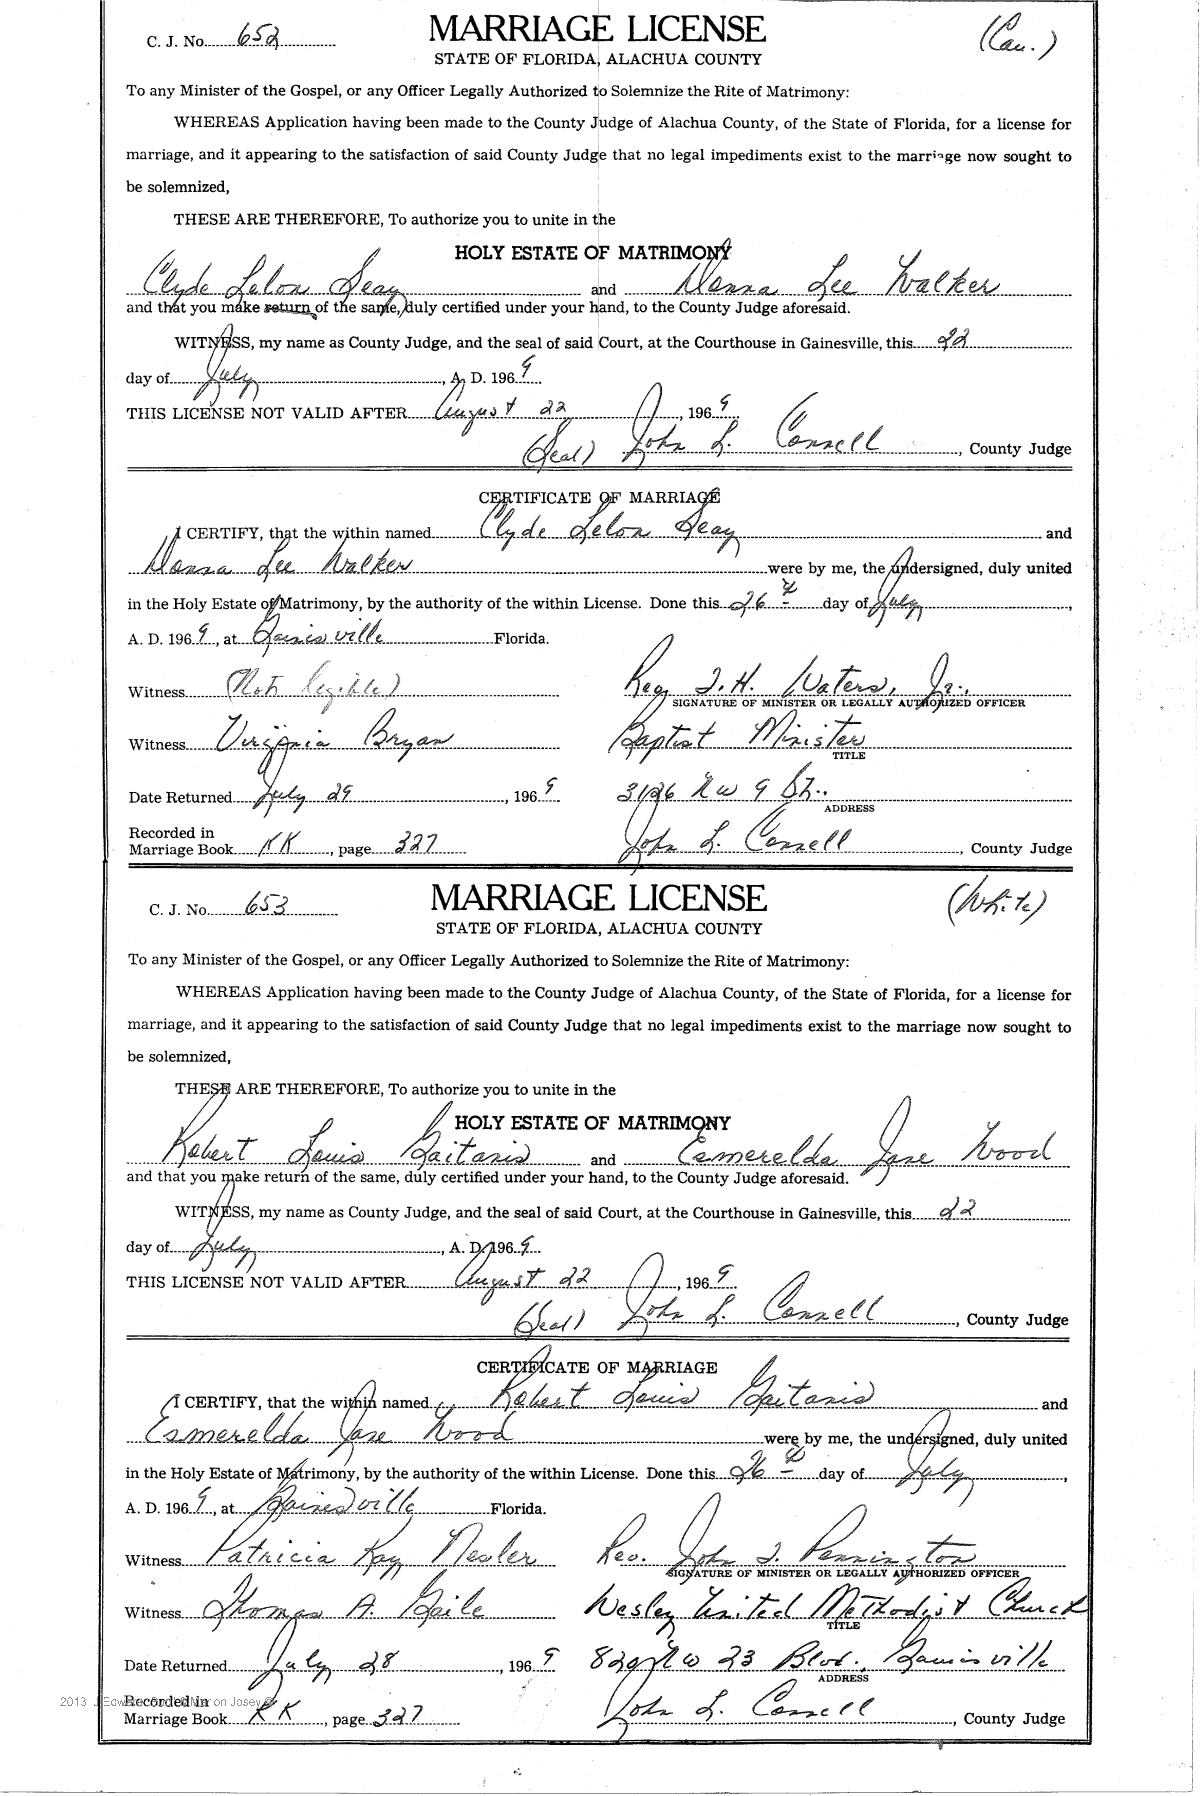 C. J. No. 652
MARRIAGE LICENSE
(Cau.)
STATE OF FLORIDA, ALACHUA COUNTY
To any Minister of the Gospel, or any Officer Legally Authorized to Solemnize the Rite of Matrimony:
WHEREAS Application having been made to the County Judge of Alachua County, of the State of Florida, for a license for
marriage, and it appearing to the satisfaction of said County Judge that no legal impediments exist to the marriage now sought to
be solemnized,
THESE ARE THEREFORE, To authorize you to unite in the
HOLY ESTATE OF MATRIMONY
Clyde Lelon Seay and Donna Lee Walker
and that you make return of the same, duly certified under your hand, to the County Judge aforesaid.
WITNESS, my name as County Judge, and the seal of said Court, at the Courthouse in Gainesville, this 22
day of July, A. D. 1969
THIS LICENSE NOT VALID AFTER August 22, 1969
(Seal) John L. Connell, County Judge
CERTIFICATE OF MARRIAGE
I CERTIFY, that the within named Clyde Lelon Seay and
Donna Lee Walker were by me, the undersigned, duly united
in the Holy Estate of Matrimony, by the authority of the within License. Done this 26th day of July,
A. D. 1969, at Gainesville Florida.
Witness (Not legible) Rev. T. H. Waters, Jr.,
SIGNATURE OF MINISTER OR LEGALLY AUTHORIZED OFFICER
Witness Virginia Bryan Baptist Minister
TITLE
Date Returned July 29, 1969 3126 NW 9 St.
ADDRESS
Recorded in
Marriage Book KK, page 327 John L. Connell, County Judge
C. J. No. 653
MARRIAGE LICENSE
(White)
STATE OF FLORIDA, ALACHUA COUNTY
To any Minister of the Gospel, or any Officer Legally Authorized to Solemnize the Rite of Matrimony:
WHEREAS Application having been made to the County Judge of Alachua County, of the State of Florida, for a license for
marriage, and it appearing to the satisfaction of said County Judge that no legal impediments exist to the marriage now sought to
be solemnized,
THESE ARE THEREFORE, To authorize you to unite in the
HOLY ESTATE OF MATRIMONY
Robert Louis Gaitanis and Esmerelda Jane Wood
and that you make return of the same, duly certified under your hand, to the County Judge aforesaid.
WITNESS, my name as County Judge, and the seal of said Court, at the Courthouse in Gainesville, this 22
day of July, A. D. 1969
THIS LICENSE NOT VALID AFTER August 22, 1969
(Seal) John L. Connell, County Judge
CERTIFICATE OF MARRIAGE
I CERTIFY, that the within named Robert Louis Gaitanis and
Esmerelda Jane Wood were by me, the undersigned, duly united
in the Holy Estate of Matrimony, by the authority of the within License. Done this 26th day of July,
A. D. 1969, at Gainesville Florida.
Witness Patricia Kay Nesler Rev. John J. Pennington
SIGNATURE OF MINISTER OR LEGALLY AUTHORIZED OFFICER
Witness Thomas A. Gaile Wesley United Methodist Church
TITLE
Date Returned July 28, 1969 826 NW 23 Blvd., Gainesville
ADDRESS
Recorded in
Marriage Book KK, page 327 John L. Connell, County Judge
2013